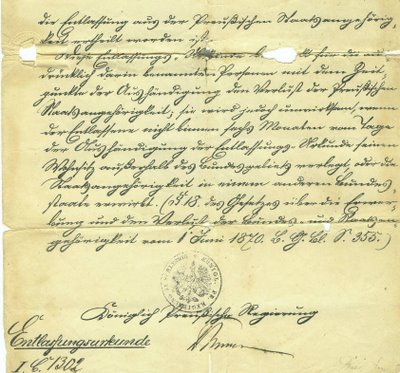 die Entlassung aus der Preußischen Staatsangehörig-
keit ertheilt worden ist.
Diese Entlassungs-Urkunde bewirkt für die aus-
drücklich darin benannten Personen mit dem Zeit-
punkte der Aushändigung den Verlust der Preußischen
Staatsangehörigkeit; sie wird jedoch unwirksam, wenn
der Entlassene nicht binnen sechs Monaten vom Tage
der Aushändigung der Entlassungs-Urkunde seinen
Wohnsitz außerhalb des Bundesgebiets verlegt oder die
Staatsangehörigkeit in einem anderen Bundes-
staate erwirbt. (§ 18 des Gesetzes über die Erwer-
bung und den Verlust der Bundes- und Staatsan-
gehörigkeit vom 1 Juni 1870. B. G. Bl. S. 355.)
Königlich Preußische Regierung
Entlassungsurkunde
I. C. 1302